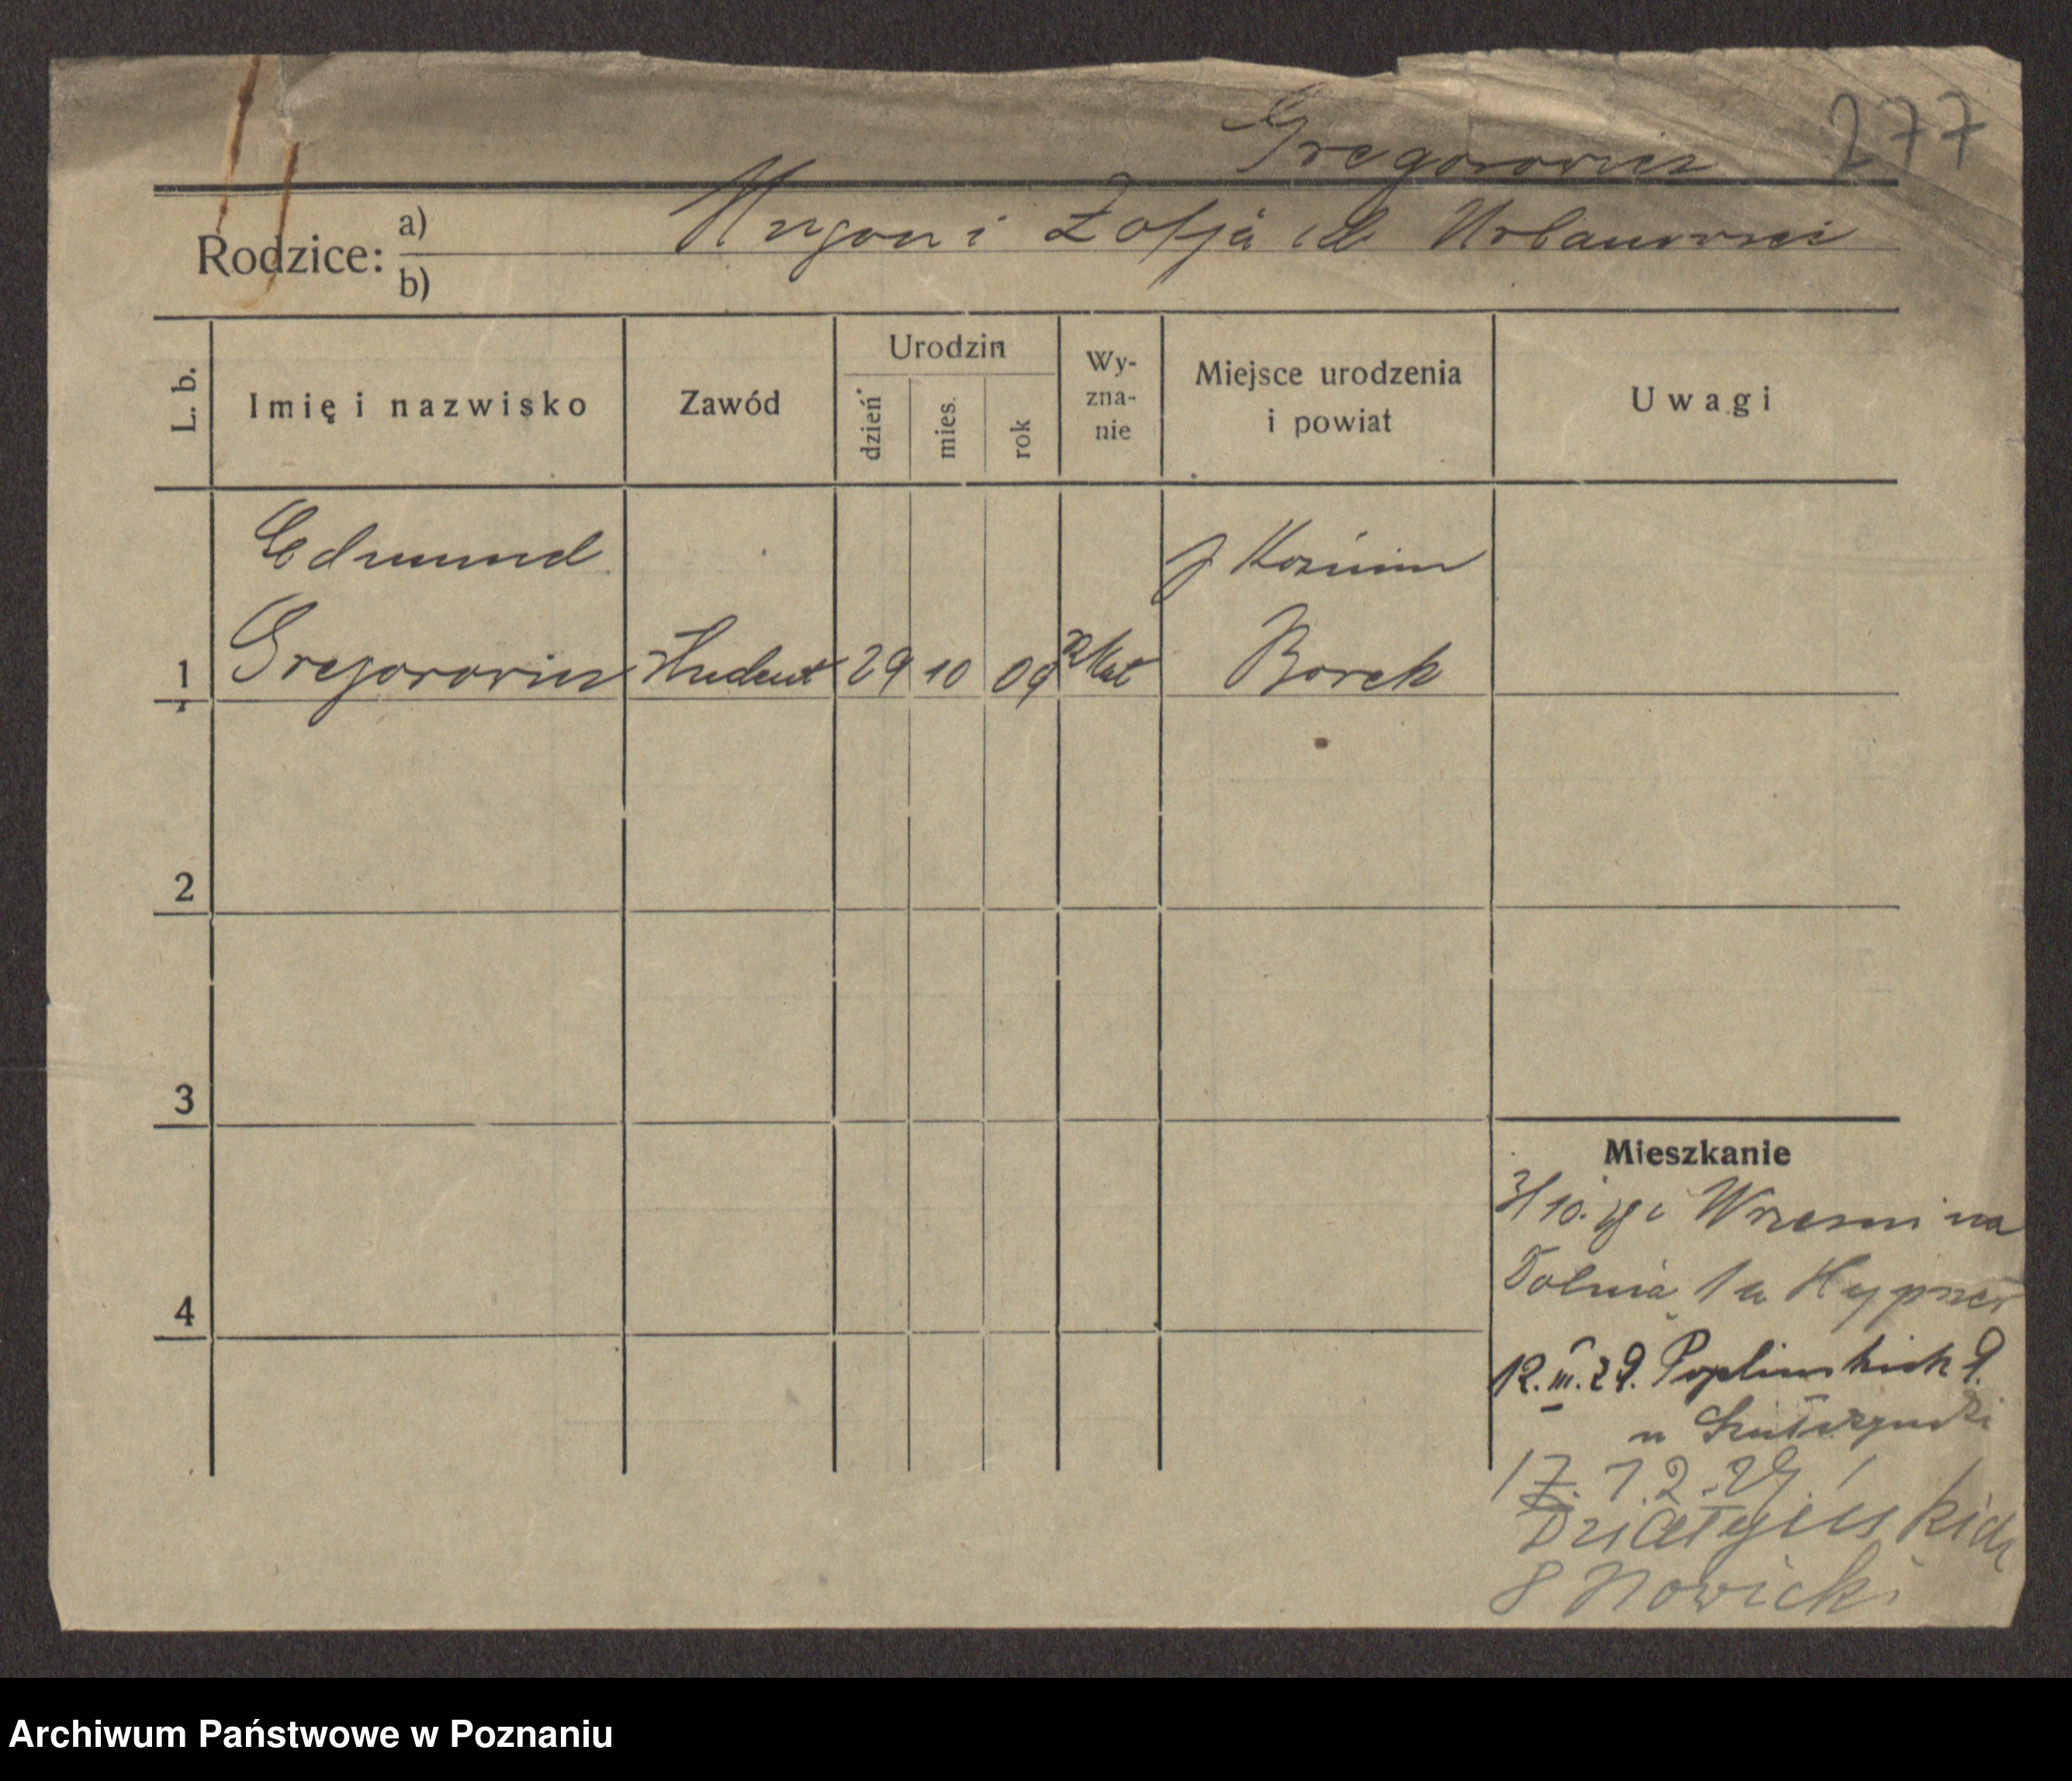 Gregorowicz 277
Rodzice: a) Hugon i Zofja Urbanowski
b)
L. b. Imię i nazwisko Zawód Urodzin dzień mies. rok Wy-zna-nie Miejsce urodzenia i powiat Uwagi
Edmund Koźmin
1 Gregorowicz student 29 10 09 Rkat Borek
2
3
Mieszkanie
Wrześni na
Dolnia 1
4
12.III.29. Poplinskich 9.
u
17.12.29
Działyńskich
8 Nowicki
Archiwum Państwowe w Poznaniu